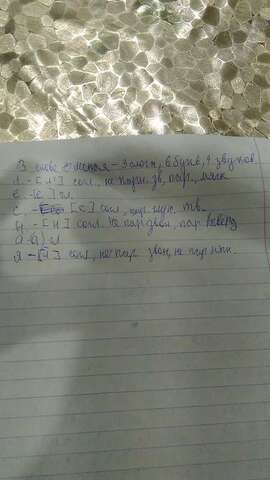 В слове лесная - 3 слога, 6 букв, 7 звуков
Л - [л'] согл, не парн. зв, пар., мягк
Е - [ ] гл.
С - [с] согл, пар. глух. тв.
Н - [н] согл. не пар звон, пар тверд
а- [а] гл
я - [й'] согл, не пар звон, не пар мягк.